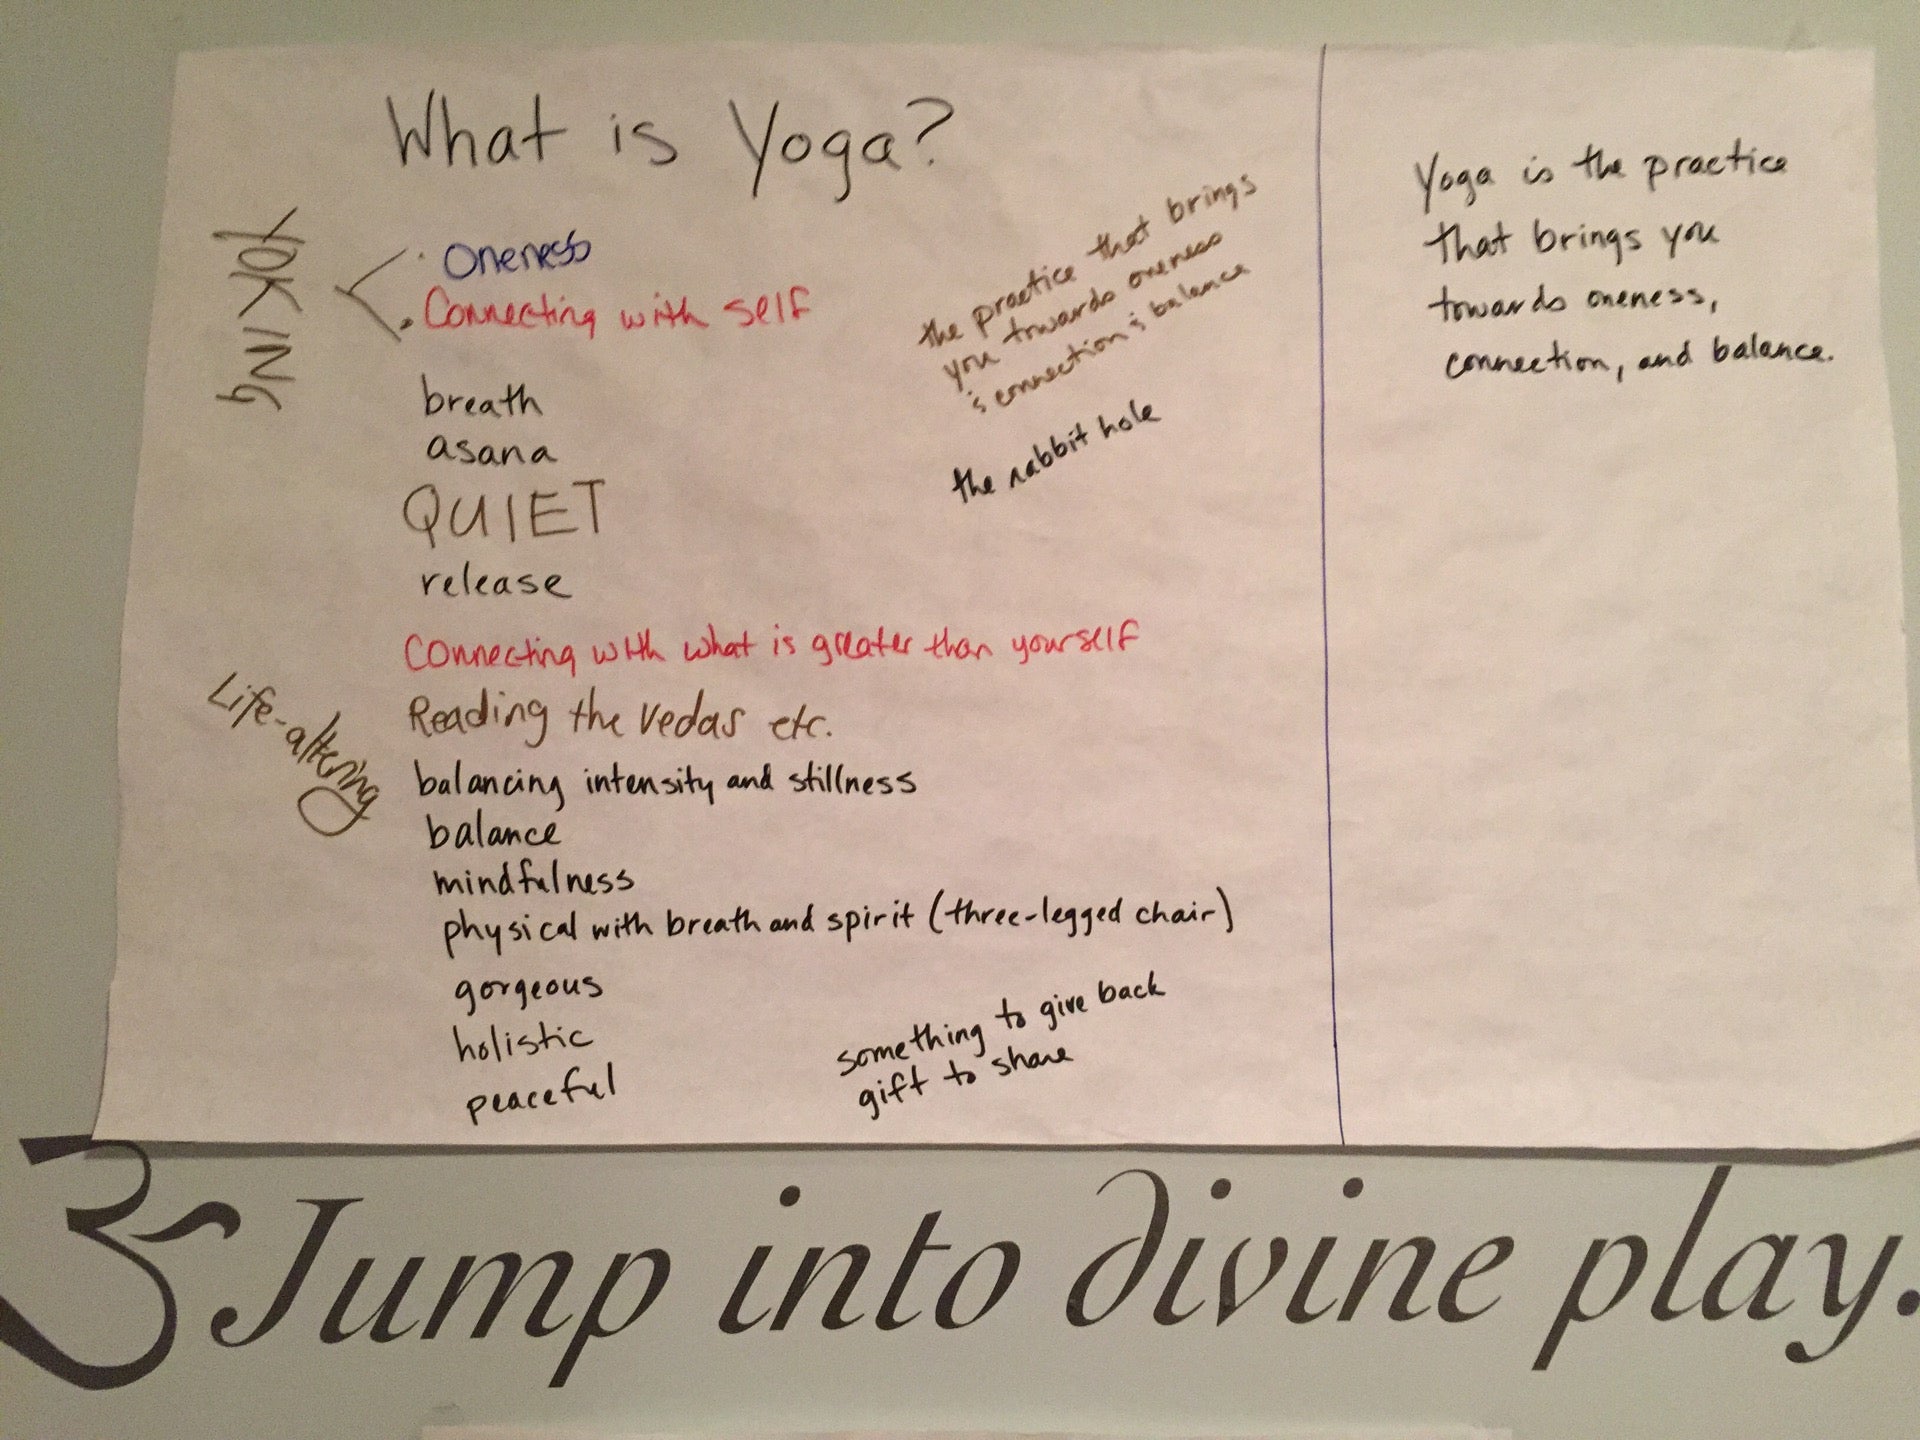 What is Yoga?
YOKING
· Oneness
· Connecting with self
breath
asana
QUIET
release
Connecting with what is greater than yourself
Reading the Vedas etc.
Life-altering
balancing intensity and stillness
balance
mindfulness
physical with breath and spirit (three-legged chair)
gorgeous
holistic
peaceful
the practice that brings
you towards oneness
& connection & balance
the rabbit hole
something to give back
gift to share
Yoga is the practice
that brings you
towards oneness,
connection, and balance.
Jump into divine play.